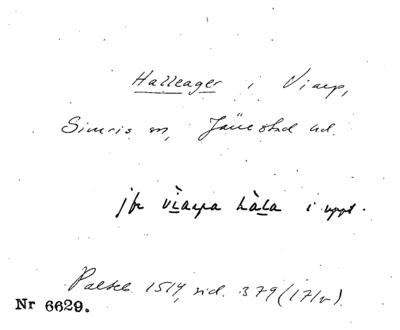 Halleager i Viarp,
Simris sn, Järrestad hd.
jfr vìarpa hàla i uppt.
Paltsb. 1514, sid. 379 (171v).
Nr 6629.